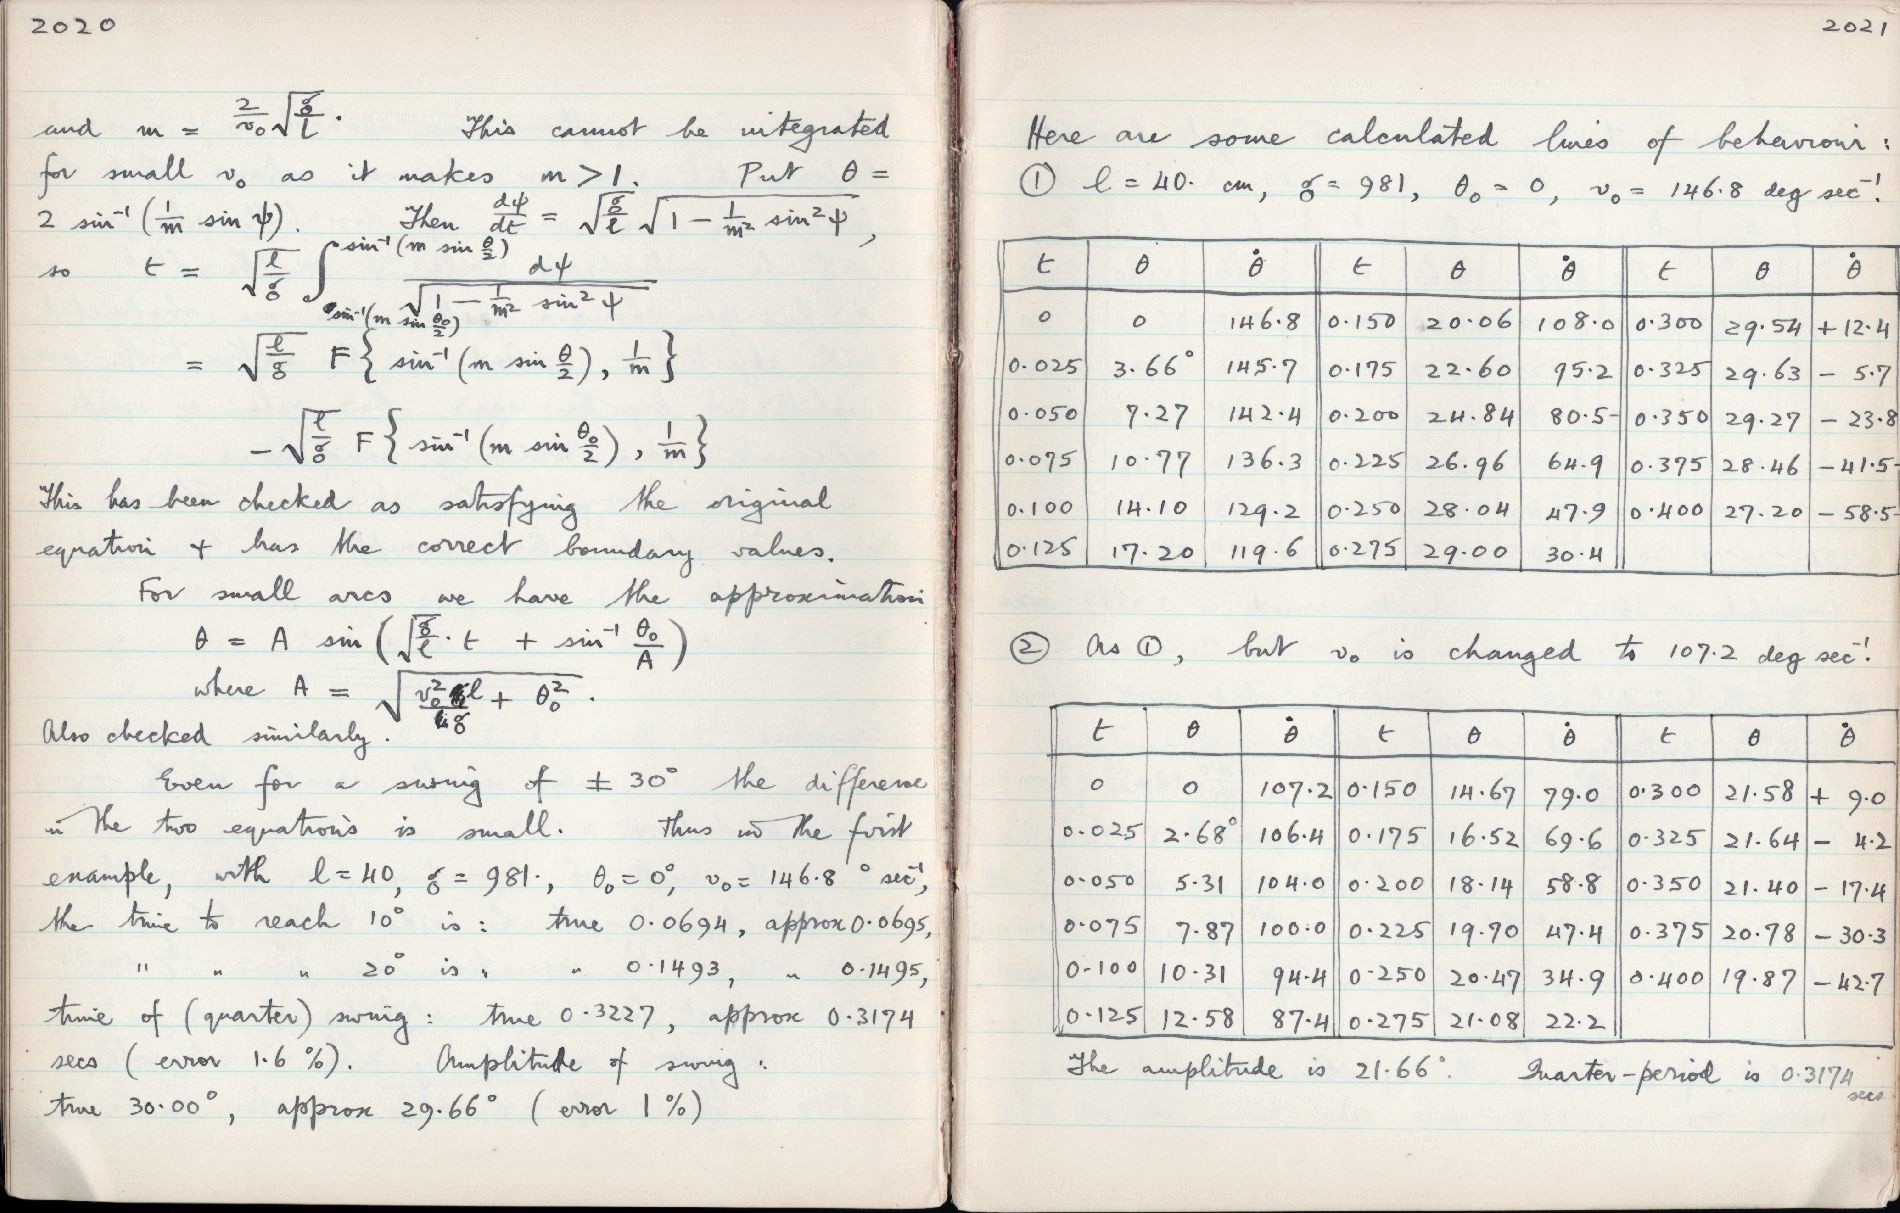 2020
and m = 2/v₀ √(g/l). This cannot be integrated
for small v₀ as it makes m > 1. Put θ =
2 sin⁻¹ (1/m sin ψ). Then dψ/dt = √(g/l) √(1 − 1/m² sin² ψ),
so t = √(l/g) ∫_{sin⁻¹(m sin θ₀/2)}^{sin⁻¹(m sin θ/2)} dψ / √(1 − 1/m² sin² ψ)
= √(l/g) F { sin⁻¹ (m sin θ/2), 1/m }
− √(l/g) F { sin⁻¹ (m sin θ₀/2), 1/m }
This has been checked as satisfying the original
equation + has the correct boundary values.
For small arcs we have the approximation
θ = A sin (√(g/l) · t + sin⁻¹ θ₀/A)
where A = √(v₀² l/g + θ₀²).
Also checked similarly.
Even for a swing of ± 30° the difference
in the two equations is small. Thus in the first
example, with l = 40, g = 981., θ₀ = 0°, v₀ = 146.8 ° sec⁻¹,
the time to reach 10° is: true 0.0694, approx 0.0695,
" " " 20° is " " 0.1493, " 0.1495,
time of (quarter) swing: true 0.3227, approx 0.3174
secs (error 1.6 %). Amplitude of swing:
true 30.00°, approx 29.66° (error 1 %)
2021
Here are some calculated lines of behaviour:
① l = 40. cm, g = 981, θ₀ = 0, v₀ = 146.8 deg sec⁻¹.
t θ θ̇ t θ θ̇ t θ θ̇
0 0 146.8 0.150 20.06 108.0 0.300 29.54 + 12.4
0.025 3.66° 145.7 0.175 22.60 95.2 0.325 29.63 − 5.7
0.050 7.27 142.4 0.200 24.84 80.5- 0.350 29.27 − 23.8
0.075 10.77 136.3 0.225 26.96 64.9 0.375 28.46 − 41.5-
0.100 14.10 129.2 0.250 28.04 47.9 0.400 27.20 − 58.5-
0.125 17.20 119.6 0.275 29.00 30.4
② As ①, but v₀ is changed to 107.2 deg sec⁻¹.
t θ θ̇ t θ θ̇ t θ θ̇
0 0 107.2 0.150 14.67 79.0 0.300 21.58 + 9.0
0.025 2.68° 106.4 0.175 16.52 69.6 0.325 21.64 − 4.2
0.050 5.31 104.0 0.200 18.14 58.8 0.350 21.40 − 17.4
0.075 7.87 100.0 0.225 19.70 47.4 0.375 20.78 − 30.3
0.100 10.31 94.4 0.250 20.47 34.9 0.400 19.87 − 42.7
0.125 12.58 87.4 0.275 21.08 22.2
The amplitude is 21.66°. Quarter-period is 0.3174
secs